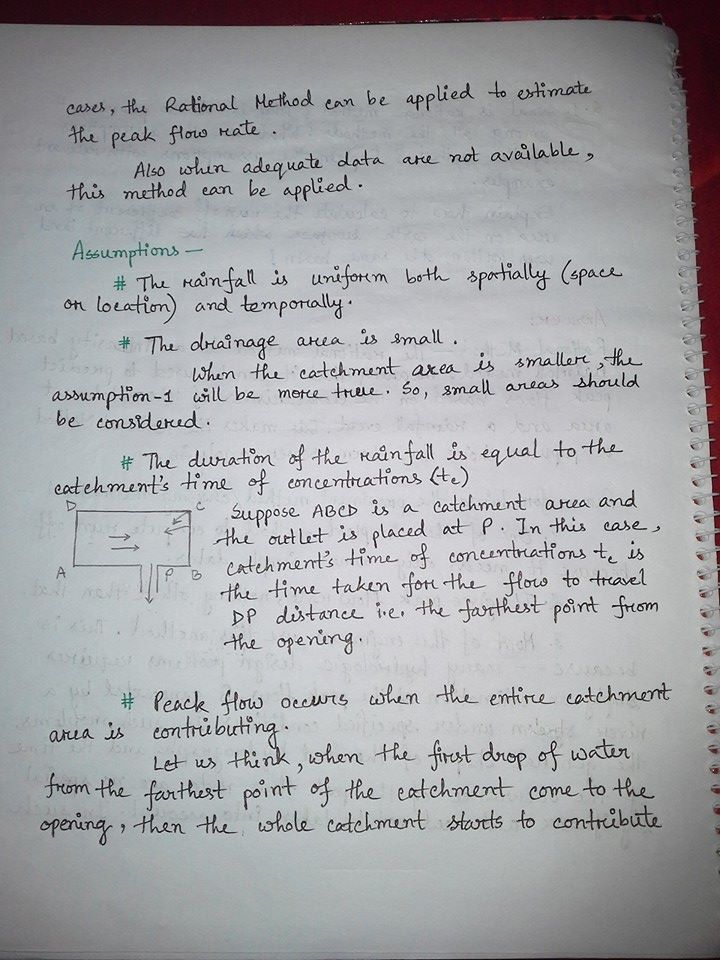 cases, the Rational Method can be applied to estimate
the peak flow rate.
Also when adequate data are not available,
this method can be applied.
Assumptions —
# The rainfall is uniform both spatially (space
or location) and temporally.
# The drainage area is small.
When the catchment area is smaller, the
assumption-1 will be more true. So, small areas should
be considered.
# The duration of the rainfall is equal to the
catchment's time of concentrations (tc)
D C
A P B
Suppose ABCD is a catchment area and
the outlet is placed at P. In this case,
catchment's time of concentrations tc is
the time taken for the flow to travel
DP distance i.e. the farthest point from
the opening.
# Peack flow occurs when the entire catchment
area is contributing.
Let us think, when the first drop of water
from the farthest point of the catchment come to the
opening, then the whole catchment starts to contribute